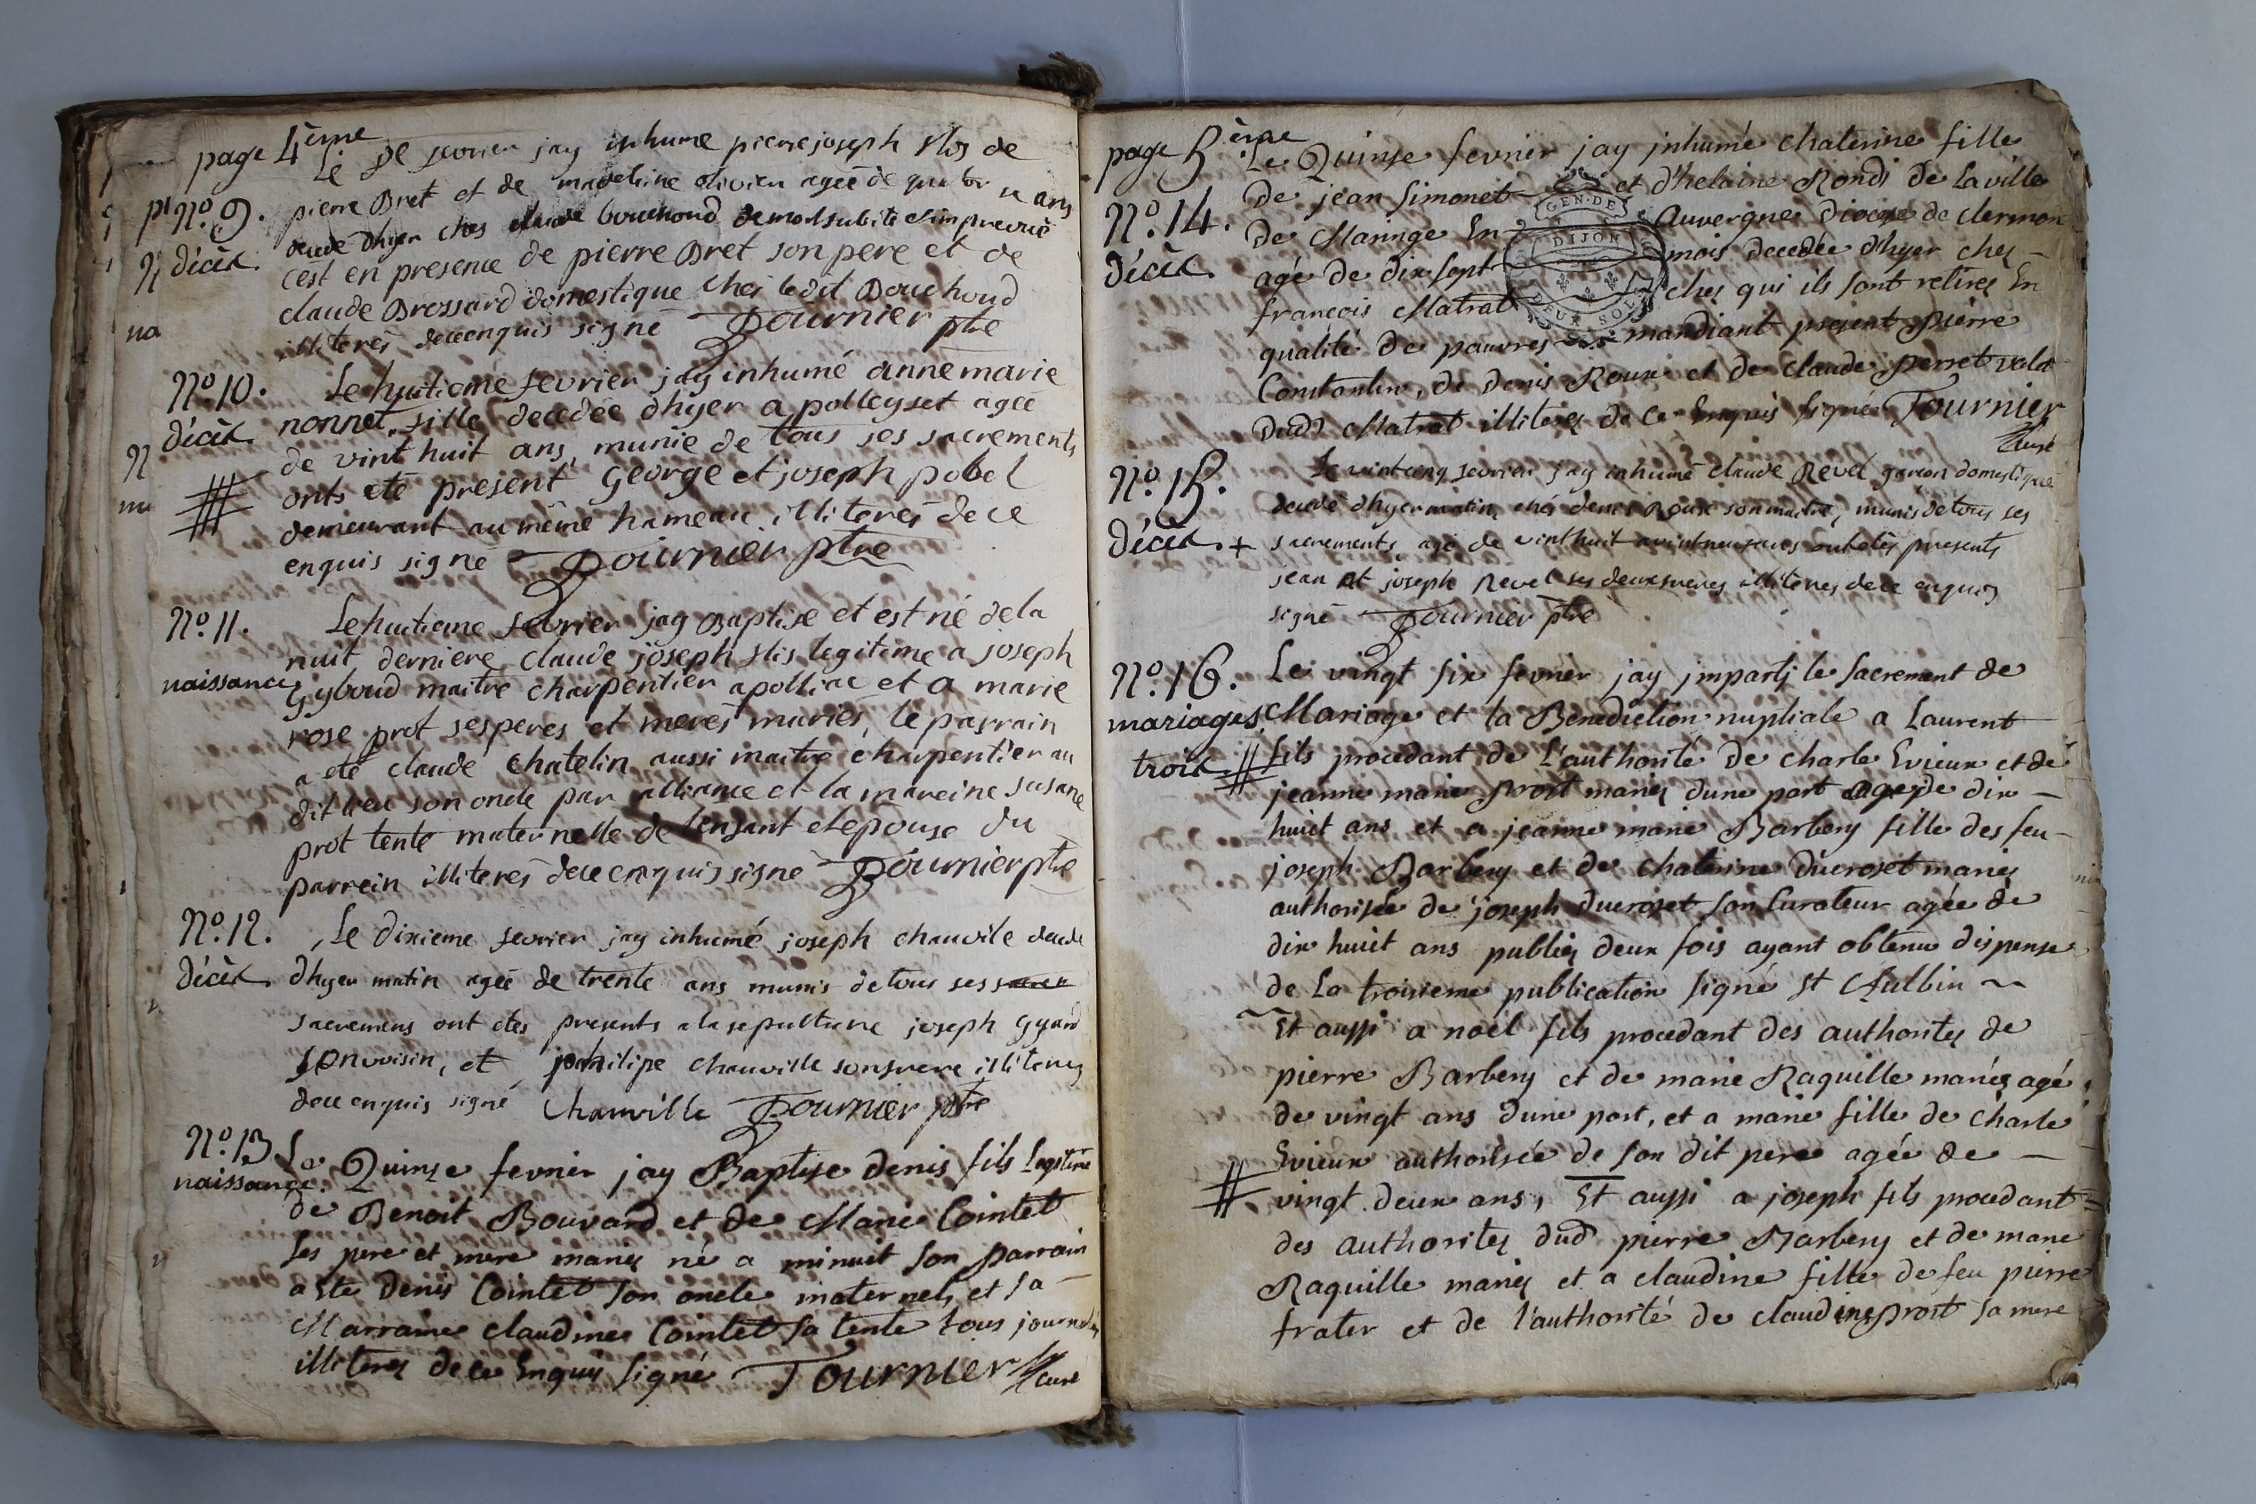 page 4ème
Le 5e fevrier jay inhumé pierre joseph fils de
No. 9. pierre Bret et de madeleine olivier ageé de quator ze ans
décès. decedé dhyer ches claude bouchoud de mort subite et imprevuë
cest en presence de pierre Bret son pere et de
claude Brossard domestique ches ledit Bouchoud
illiterés dece enquis signé Tournier ptre
No. 10. Le huitieme fevrier jay inhumé anne marie
décès. nonnet, fille decedée dhyer a polleyset ageé
de vint huit ans, munie de tous ses sacrements
onts eté present George et joseph pobel
demeurant au même hameau illiterés dece
enquis signé Tournier ptre
No. 11. Le huitieme fevrier jay Baptise et est né de la
nuit derniere claude joseph fils legitime a joseph
naissance Gyboud maitre charpentier a polliac et a marie
rose prot ses peres et meres mariés, le parrain
a eté claude chatelin aussi maitre charpentier au
dit lieu son oncle par alliance et la mareine susane
prot tente maternelle de lenfant et epouse du
parrein illiterés dece enquis signé Tournier ptre
No. 12. Le dixieme fevrier jay inhumé joseph chauvile decedé
décès. dhyer matin ageé de trente ans munis de tous ses
sacremens ont etes presents a la sepulture joseph Gyard
son voisin, et philipe chauville son frere illiteres
dece enquis signé Chauville Tournier ptre
No. 13 Le Quinze fevrier jay Baptise denis fils legitime
naissance. de Benoit Bouvard et de Marie Cointet
ses pere et mere mariés né a minuit son parrain
a Ete denis Cointet son oncle maternel, et sa
Marraine claudine Cointet sa tente tous journal
illiteres de ce Enquis signé Tournier curé
page 5ème
Le Quinse fevrier jay inhumé chaterine fille
No. 14. de jean Simonet et d'helaine Rondi de la ville
de Maringe En Auvergne diocese de clermon
décès. agé de dix sept mois decedée d'hyer ches
françois Matrat ches qui ils sont retires En
qualité de pauvres mandiant present pierre
Constantin, de denis Roux et de claude perret vala
dudt Matrat illiteres de ce Enquis signé Tournier
curé
GEN. DE
DIJON
DEUX SOLS
No. 15. Le vintcinq fevrier jay inhumé claude Revel garcon domestique
decedé dhyer matin chés denis Roux son maitre, munis de tous ses
décès. + sacrements agé de vint huit a vint neuf ans ont etés presents
jean et joseph Revel ses deux freres illiteres dece enquis
signé Tournier ptre
No. 16. Le vingt six fevrier jay jmparti le sacrement de
mariages Mariage et la Benediction nuptiale a Laurent
trois fils procedant de l'authorité de charle Evieux et de
jeanne marie prost mariés dune part agé de dix
huit ans et a jeanne marie Barbery fille des feu
joseph Barbery et de chaterine ducroset mariés
authorisée de joseph ducroset son curateur agée de
dix huit ans publiés deux fois ayant obtenu dispense
de la troisieme publication signé St Aulbin
Et aussi a noël fils procedant des authorités de
pierre Barbery et de marie Raquille mariés agé
de vingt ans dune part, et a marie fille de charle
Evieux authorisée de son dit pere agée de
vingt deux ans, Et aussi a joseph fils procedant
des authorites dud pierre Barbery et de marie
Raquille mariés et a claudine fille de feu pierre
frater et de l'authorité de claudine prost sa mere